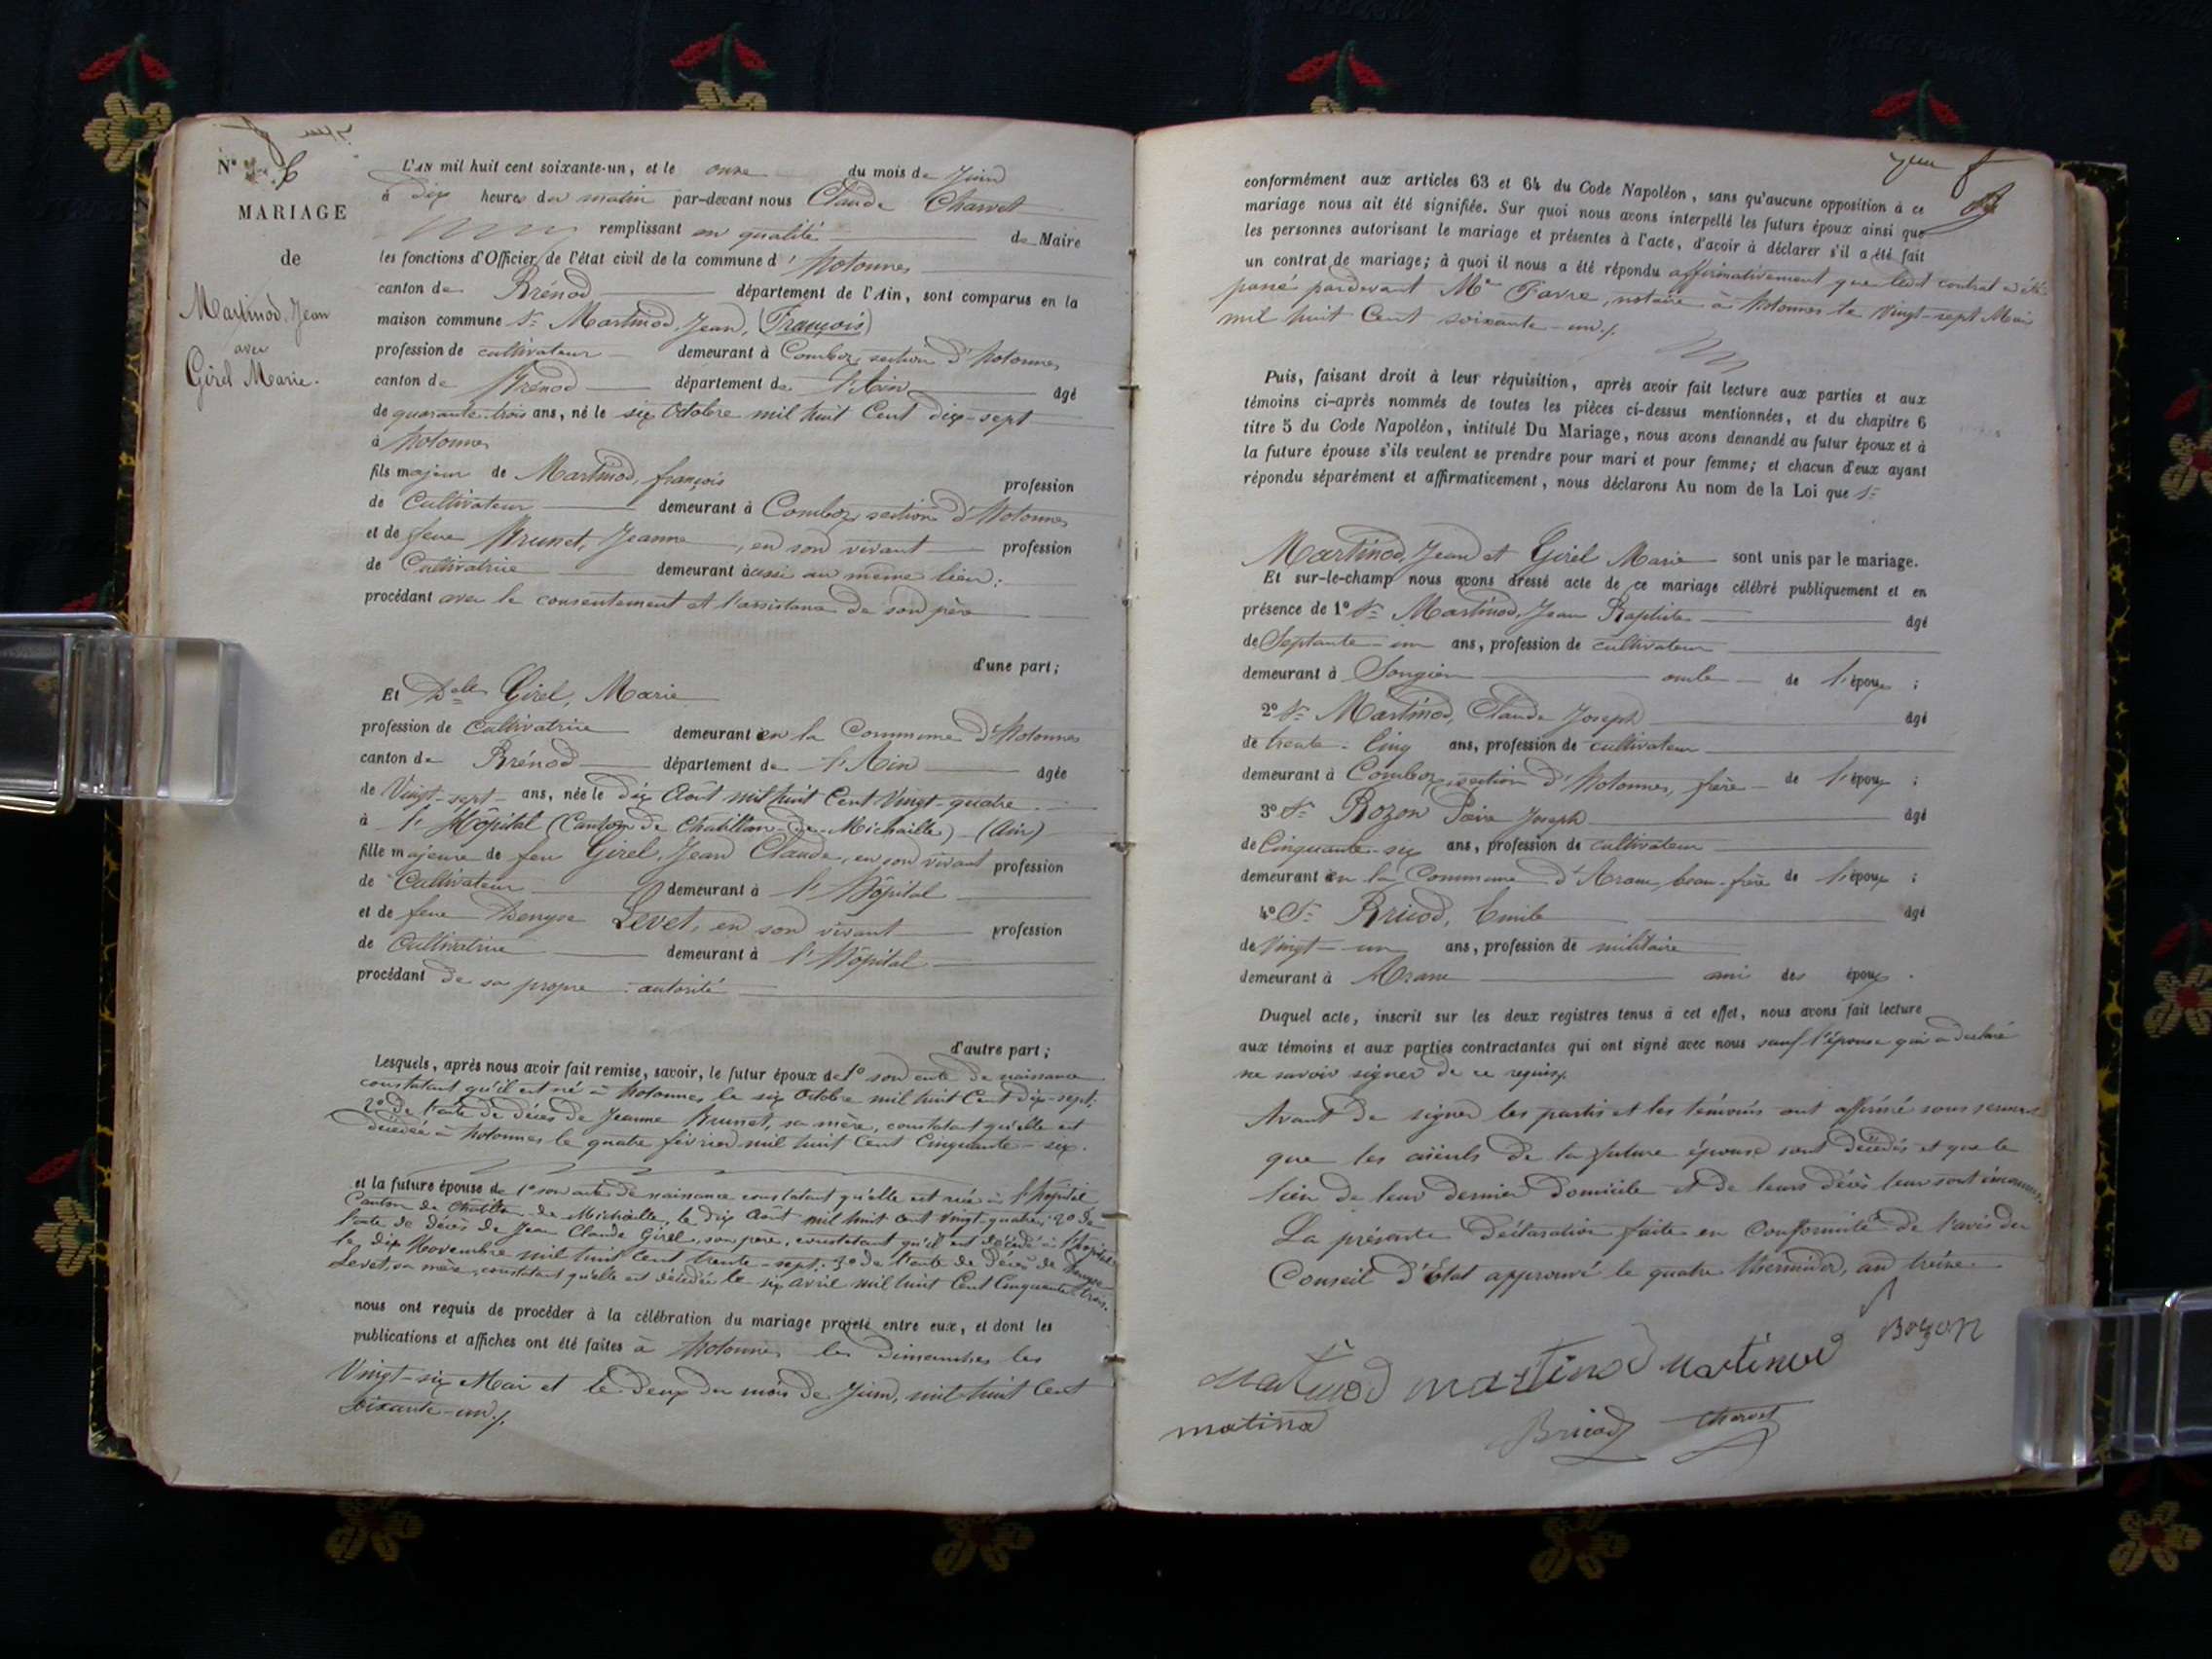 N° 6
MARIAGE
de
Martinod, Jean
avec
Girel Marie.
L'AN mil huit cent soixante-un, et le onze du mois de Juin
à Dix heures du matin par-devant nous Claude Charvet
remplissant en qualité de Maire
les fonctions d'Officier de l'état civil de la commune d' hotonnes
canton de Brénod département de l'Ain, sont comparus en la
maison commune Sr Martinod, Jean, (François)
profession de cultivateur demeurant à Comboz, section d'hotonnes
canton de Brénod département de l'Ain âgé
de quarante-trois ans, né le six Octobre mil huit Cent dix-sept
à hotonnes
fils majeur de Martinod, françois profession
de Cultivateur demeurant à Comboz, section d'hotonnes
et de feue Brunet, Jeanne, en son vivant profession
de Cultivatrice demeurant aussi au même lieu;
procédant avec le consentement et l'assistance de son père
d'une part;
Et Delle Girel, Marie
profession de Cultivatrice demeurant en la Commune d'hotonnes
canton de Brénod département de l'Ain âgée
de Vingt-sept ans, née le dix Août mil huit Cent Vingt-quatre
à l'Hôpital (Canton de Chatillon-de-Michaille) (Ain)
fille majeure de feu Girel, Jean Claude, en son vivant profession
de Cultivateur demeurant à l'hôpital
et de feue Denyse Levet, en son vivant profession
de Cultivatrice demeurant à l'hôpital
procédant de sa propre autorité
d'autre part;
Lesquels, après nous avoir fait remise, savoir, le futur époux de 1° son acte de naissance
constatant qu'il est né à hotonnes le six Octobre mil huit Cent dix-sept;
2° de l'acte de décès de Jeanne Brunet, sa mère, constatant qu'elle est
décédée à hotonnes le quatre février mil huit Cent Cinquante-six.
et la future épouse de 1° son acte de naissance constatant qu'elle est née à l'hôpital
Canton de Chatillon-de-Michaille, le dix Août mil huit cent vingt-quatre; 2° de
l'acte de décès de Jean Claude Girel, son père, constatant qu'il est décédé à l'hôpital
le dix Novembre mil huit cent trente-sept; 3° de l'acte de décès de Denyse
Levet, sa mère, constatant qu'elle est décédée le six avril mil huit Cent Cinquante-trois.
nous ont requis de procéder à la célébration du mariage projeté entre eux, et dont les
publications et affiches ont été faites à hotonnes les Dimanches les
Vingt-six Mai et le Deux du mois de Juin, mil huit Cent
soixante-un./.
conformément aux articles 63 et 64 du Code Napoléon, sans qu'aucune opposition à ce
mariage nous ait été signifiée. Sur quoi nous avons interpellé les futurs époux ainsi que
les personnes autorisant le mariage et présentes à l'acte, d'avoir à déclarer s'il a été fait
un contrat de mariage; à quoi il nous a été répondu affirmativement que ledit contrat a été
passé pardevant Me Favre, notaire à hotonnes le vingt-sept Mai
mil huit Cent soixante-un./.
Puis, faisant droit à leur réquisition, après avoir fait lecture aux parties et aux
témoins ci-après nommés de toutes les pièces ci-dessus mentionnées, et du chapitre 6
titre 5 du Code Napoléon, intitulé Du Mariage, nous avons demandé au futur époux et à
la future épouse s'ils veulent se prendre pour mari et pour femme; et chacun d'eux ayant
répondu séparément et affirmativement, nous déclarons Au nom de la Loi que Sr
Martinod, Jean et Girel Marie sont unis par le mariage.
Et sur-le-champ nous avons dressé acte de ce mariage célébré publiquement et en
présence de 1° Sr Martinod, Jean Baptiste âgé
de Septante-un ans, profession de cultivateur
demeurant à Songieu oncle de l'époux;
2° Sr Martinod, Claude Joseph âgé
de trente-Cinq ans, profession de cultivateur
demeurant à Comboz, section d'hotonnes, frère de l'époux;
3° Sr Bozon Joseph âgé
de Cinquante-six ans, profession de cultivateur
demeurant en la Commune d'Aranc, beau-frère de l'époux;
4° Sr Bricod, Emile âgé
de Vingt-un ans, profession de militaire
demeurant à Aranc ami des époux.
Duquel acte, inscrit sur les deux registres tenus à cet effet, nous avons fait lecture
aux témoins et aux parties contractantes qui ont signé avec nous sauf l'épouse qui a déclaré
ne savoir signer de ce requise.
Avant de signer les partis et les témoins ont affirmé sous serment
que les aïeuls de la future épouse sont décédés et que le
lieu de leur dernier domicile et de leurs décès leur sont inconnus.
La présente Déclaration faite en Conformité de l'avis du
Conseil d'Etat approuvé le quatre thermidor, an treize.
Bozon
Martinod martinod martinod
matinod
Bricod Charvet